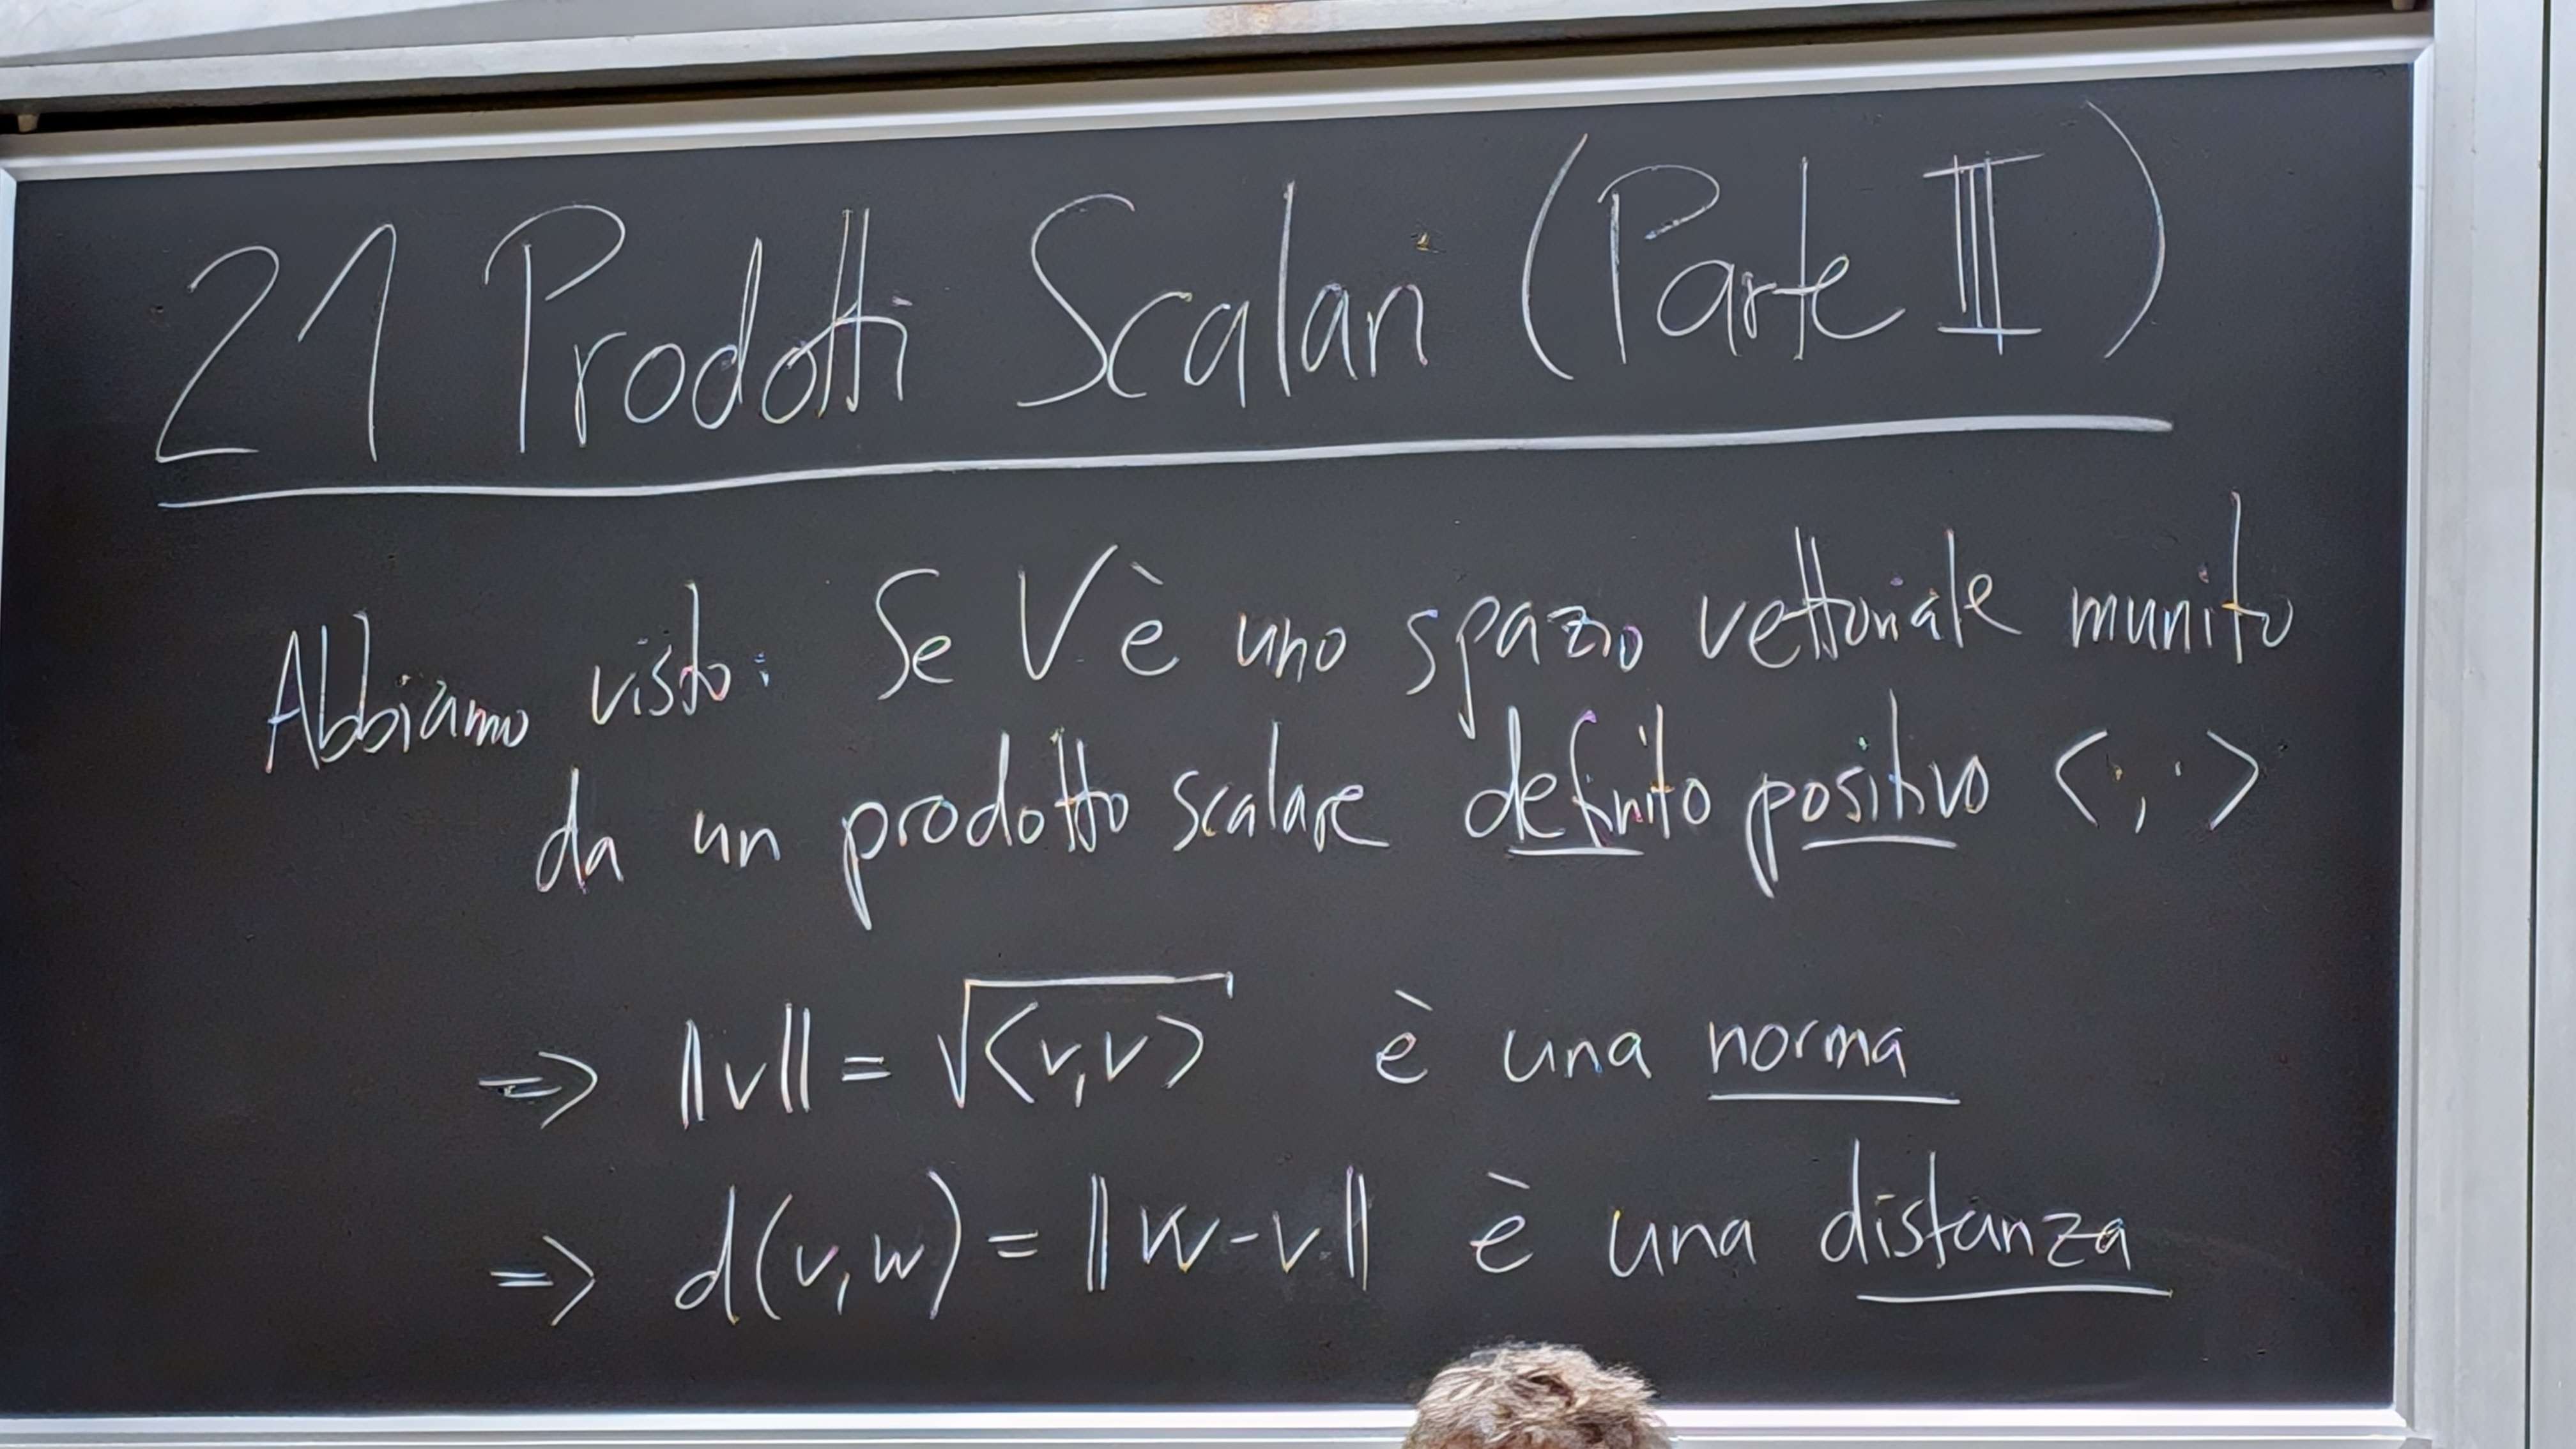 21 Prodotti Scalari (Parte III)
Abbiamo visto: Se V è uno spazio vettoriale munito
da un prodotto scalare definito positivo <·,·>
=> ||v|| = √<v,v> è una norma
=> d(v,w) = ||w-v|| è una distanza